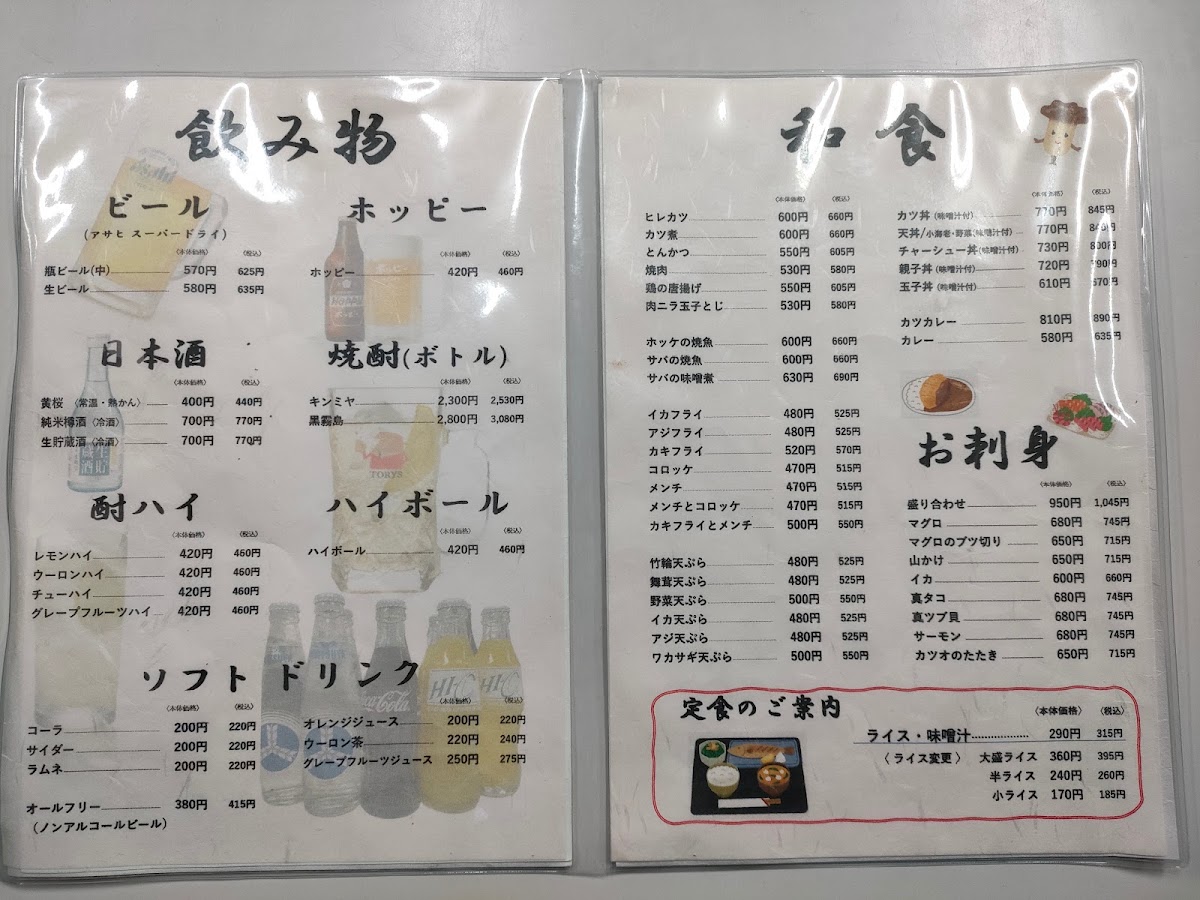 飲み物
ビール
(アサヒ スーパードライ)
〈本体価格〉 〈税込〉
瓶ビール(中) 570円 625円
生ビール 580円 635円
ホッピー
〈本体価格〉 〈税込〉
ホッピー 420円 460円
日本酒
〈本体価格〉 〈税込〉
黄桜 〈常温・熱かん〉 400円 440円
純米樽酒〈冷酒〉 700円 770円
生貯蔵酒〈冷酒〉 700円 770円
焼酎(ボトル)
〈本体価格〉 〈税込〉
キンミヤ 2,300円 2,530円
黒霧島 2,800円 3,080円
酎ハイ
〈本体価格〉 〈税込〉
レモンハイ 420円 460円
ウーロンハイ 420円 460円
チューハイ 420円 460円
グレープフルーツハイ 420円 460円
ハイボール
〈本体価格〉 〈税込〉
ハイボール 420円 460円
ソフトドリンク
〈本体価格〉 〈税込〉
コーラ 200円 220円
サイダー 200円 220円
ラムネ 200円 220円
オールフリー 380円 415円
(ノンアルコールビール)
〈本体価格〉 〈税込〉
オレンジジュース 200円 220円
ウーロン茶 220円 240円
グレープフルーツジュース 250円 275円
Asahi
HOPPY
TORYS
生貯蔵酒
Coca-Cola
HI-C
HI-C
和食
〈本体価格〉 〈税込〉
ヒレカツ 600円 660円
カツ煮 600円 660円
とんかつ 550円 605円
焼肉 530円 580円
鶏の唐揚げ 550円 605円
肉ニラ玉子とじ 530円 580円
ホッケの焼魚 600円 660円
サバの焼魚 600円 660円
サバの味噌煮 630円 690円
イカフライ 480円 525円
アジフライ 480円 525円
カキフライ 520円 570円
コロッケ 470円 515円
メンチ 470円 515円
メンチとコロッケ 470円 515円
カキフライとメンチ 500円 550円
竹輪天ぷら 480円 525円
舞茸天ぷら 480円 525円
野菜天ぷら 500円 550円
イカ天ぷら 480円 525円
アジ天ぷら 480円 525円
ワカサギ天ぷら 500円 550円
〈本体価格〉 〈税込〉
カツ丼(味噌汁付) 770円 845円
天丼/小海老・野菜(味噌汁付) 770円
チャーシュー丼(味噌汁付) 730円
親子丼(味噌汁付) 720円 790円
玉子丼(味噌汁付) 610円 670円
カツカレー 810円 890円
カレー 580円 635円
お刺身
〈本体価格〉 〈税込〉
盛り合わせ 950円 1,045円
マグロ 680円 745円
マグロのブツ切り 650円 715円
山かけ 650円 715円
イカ 600円 660円
真タコ 680円 745円
真ツブ貝 680円 745円
サーモン 680円 745円
カツオのたたき 650円 715円
定食のご案内
〈本体価格〉 〈税込〉
ライス・味噌汁 290円 315円
〈ライス変更〉 大盛ライス 360円 395円
半ライス 240円 260円
小ライス 170円 185円